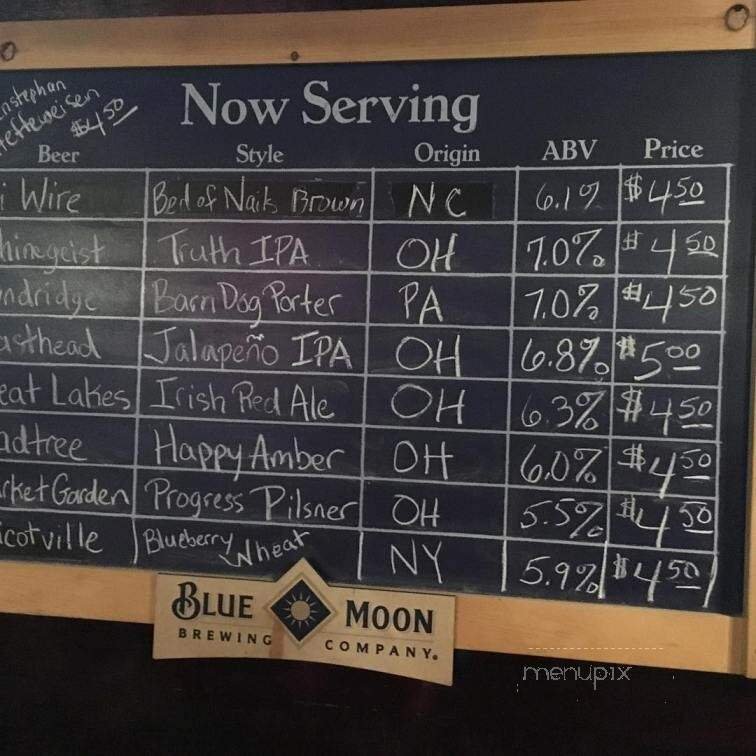 nstephan
Hefteweisen
$4 50
Now Serving
Beer Style Origin ABV Price
i Wire Bed of Nails Brown NC 6.1% $4 50
hinegeist Truth IPA OH 7.0% $4 50
ndridge Barn Dog Porter PA 7.0% $4 50
asthead Jalapeño IPA OH 6.8% $5 00
eat Lakes Irish Red Ale OH 6.3% $4 50
adtree Happy Amber OH 6.0% $4 50
rket Garden Progress Pilsner OH 5.5% $4 50
icotville Blueberry Wheat NY 5.9% $4 50
BLUE MOON
BREWING COMPANY.
menupix